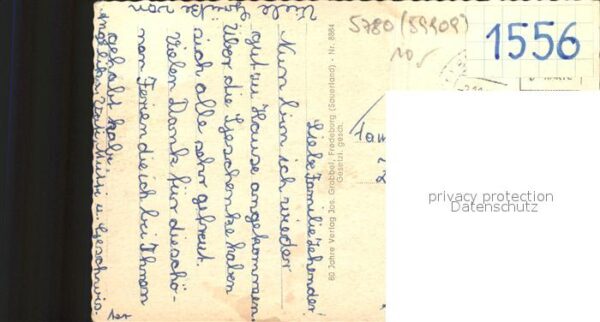 5780 (59909)
10.-
1556
Liebe Familie Zehender!
Nun bin ich wieder
gut zu Hause angekommen.
Über die Geschenke haben
sich alle sehr gefreut.
Vielen Dank für die schö-
nen Ferien die ich bei Ihnen
gehabt habe.
Vati, Mutti u. Geschwis-
ter
80 Jahre Verlag Jos. Grobbel, Fredeburg (Sauerland) - Nr. 8884
Gesetzl. gesch.
Fam
privacy protection
Datenschutz